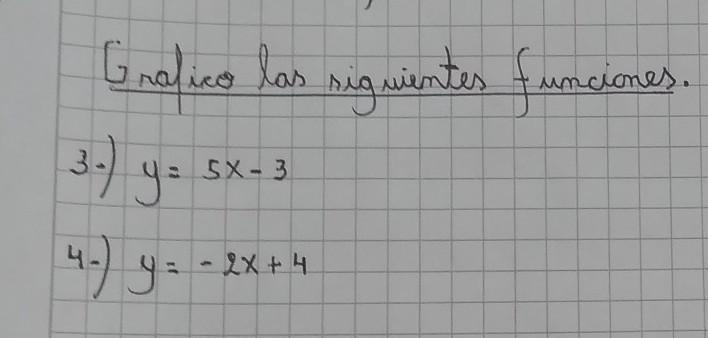 Grafico las siguientes funciones.
3-) y = 5x - 3
4-) y = - 2x + 4